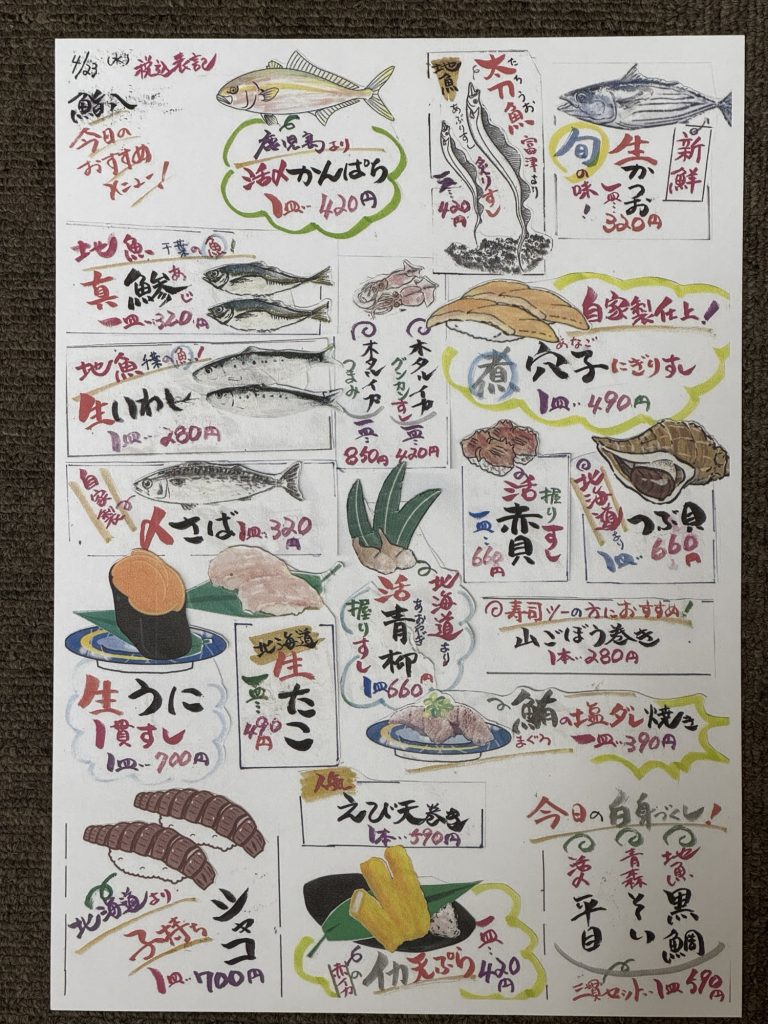 4/23 (水) 税込表記
鮨八
今日の
おすすめ
メニュー!
鹿児島より
活〆かんぱち
1皿… 420円
地魚
たちうお
太刀魚
富津より
あぶりすし
炙りすし
一皿… 420円
新鮮
生かつお
旬の味!
一皿… 320円
地魚 千葉の魚!
あじ
真鰺
一皿… 320円
地魚 篠の魚!
生いわし
1皿… 280円
ホタルイカ
グンカンすし
一皿… 420円
ホタルイカ
つまみ
一皿… 850円
自家製仕上!
あなご
煮穴子にぎりすし
1皿… 490円
自家製
〆さば 1皿… 320円
握りすし
活赤貝
一皿… 660円
北海道より
つぶ貝
1皿… 660円
生うに
1貫すし
1皿… 700円
北海道
生たこ
一皿… 490円
北海道より
あおやぎ
活青柳
握りすし
1皿 660円
◎寿司ツーの方におすすめ!
山ごぼう巻き
1本… 280円
鮪の塩ダレ焼き
まぐろ
一皿… 390円
人気
えび天巻き
1本… 590円
北海道より
子持ち
シャコ
1皿… 700円
イカ天ぷら
一皿… 420円
今日の白身づくし!
地魚 黒鯛
青森 そい
活〆 平目
三貫セット… 1皿 590円